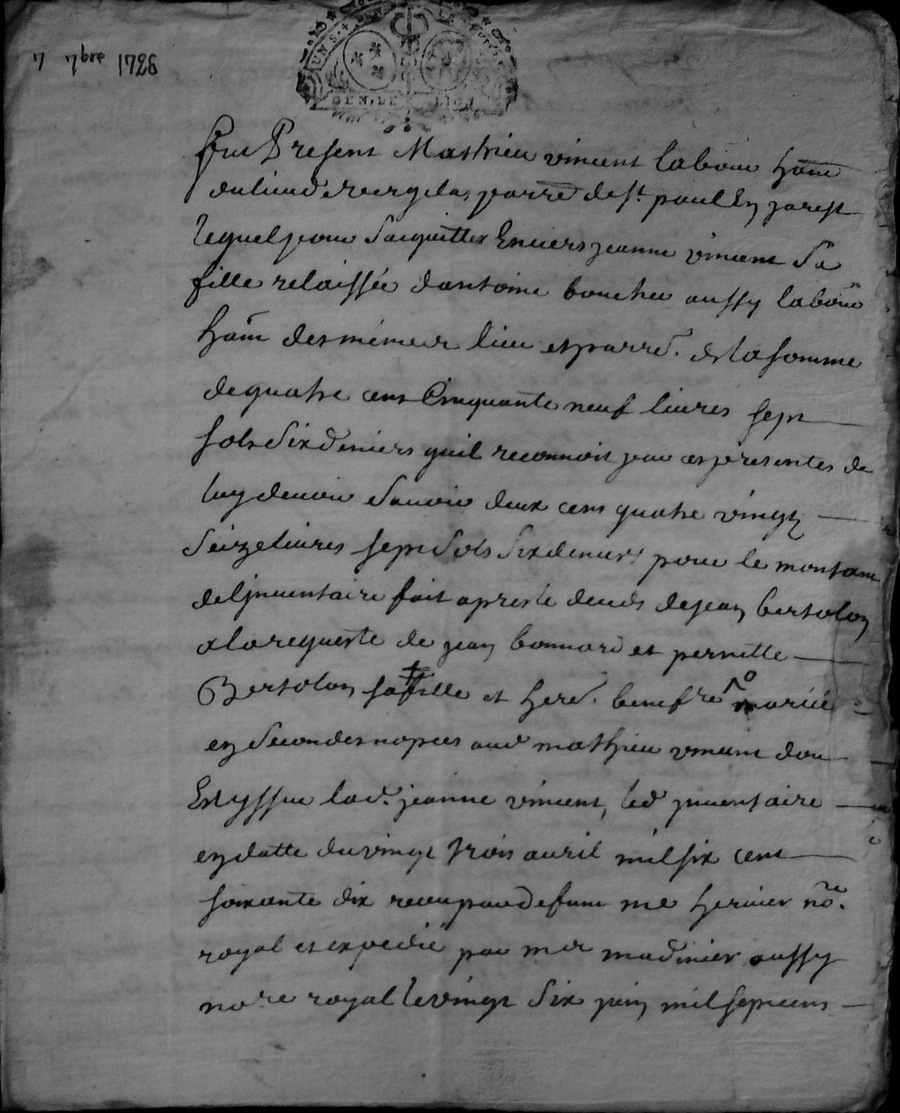 7 7bre 1726
GEN. DE LION
fut Present Mathieu vincent labour ham
du lieu de parre de st paul En jarest
lequel pour sacquitter Envers jeanne vincent sa
fille relaissée dantoine boucher aussy labour
ham desmemes lieu et parre. de la somme
de quatre cens Cinquante neuf livres sept
sols six deniers quil reconnoit par ces presentes de
luy devoir scavoir deux cens quatre vingt
seize livres sept sols six deniers pour le montant
de linventaire fait apres le deceds de jean bertolon
a la requeste de jean bonnard et pernette
Bertolon sa fille et hered. beneffre mariée
en secondes nopces aud mathieu vincent dou
Est yssue lad. jeanne vincent, led inventaire
en datte du vingt trois avril mil six cent
soixante dix receu par defunt me hervier nore.
royal et expedié par me madinier aussy
nore royal le vingt six juin mil sept cens